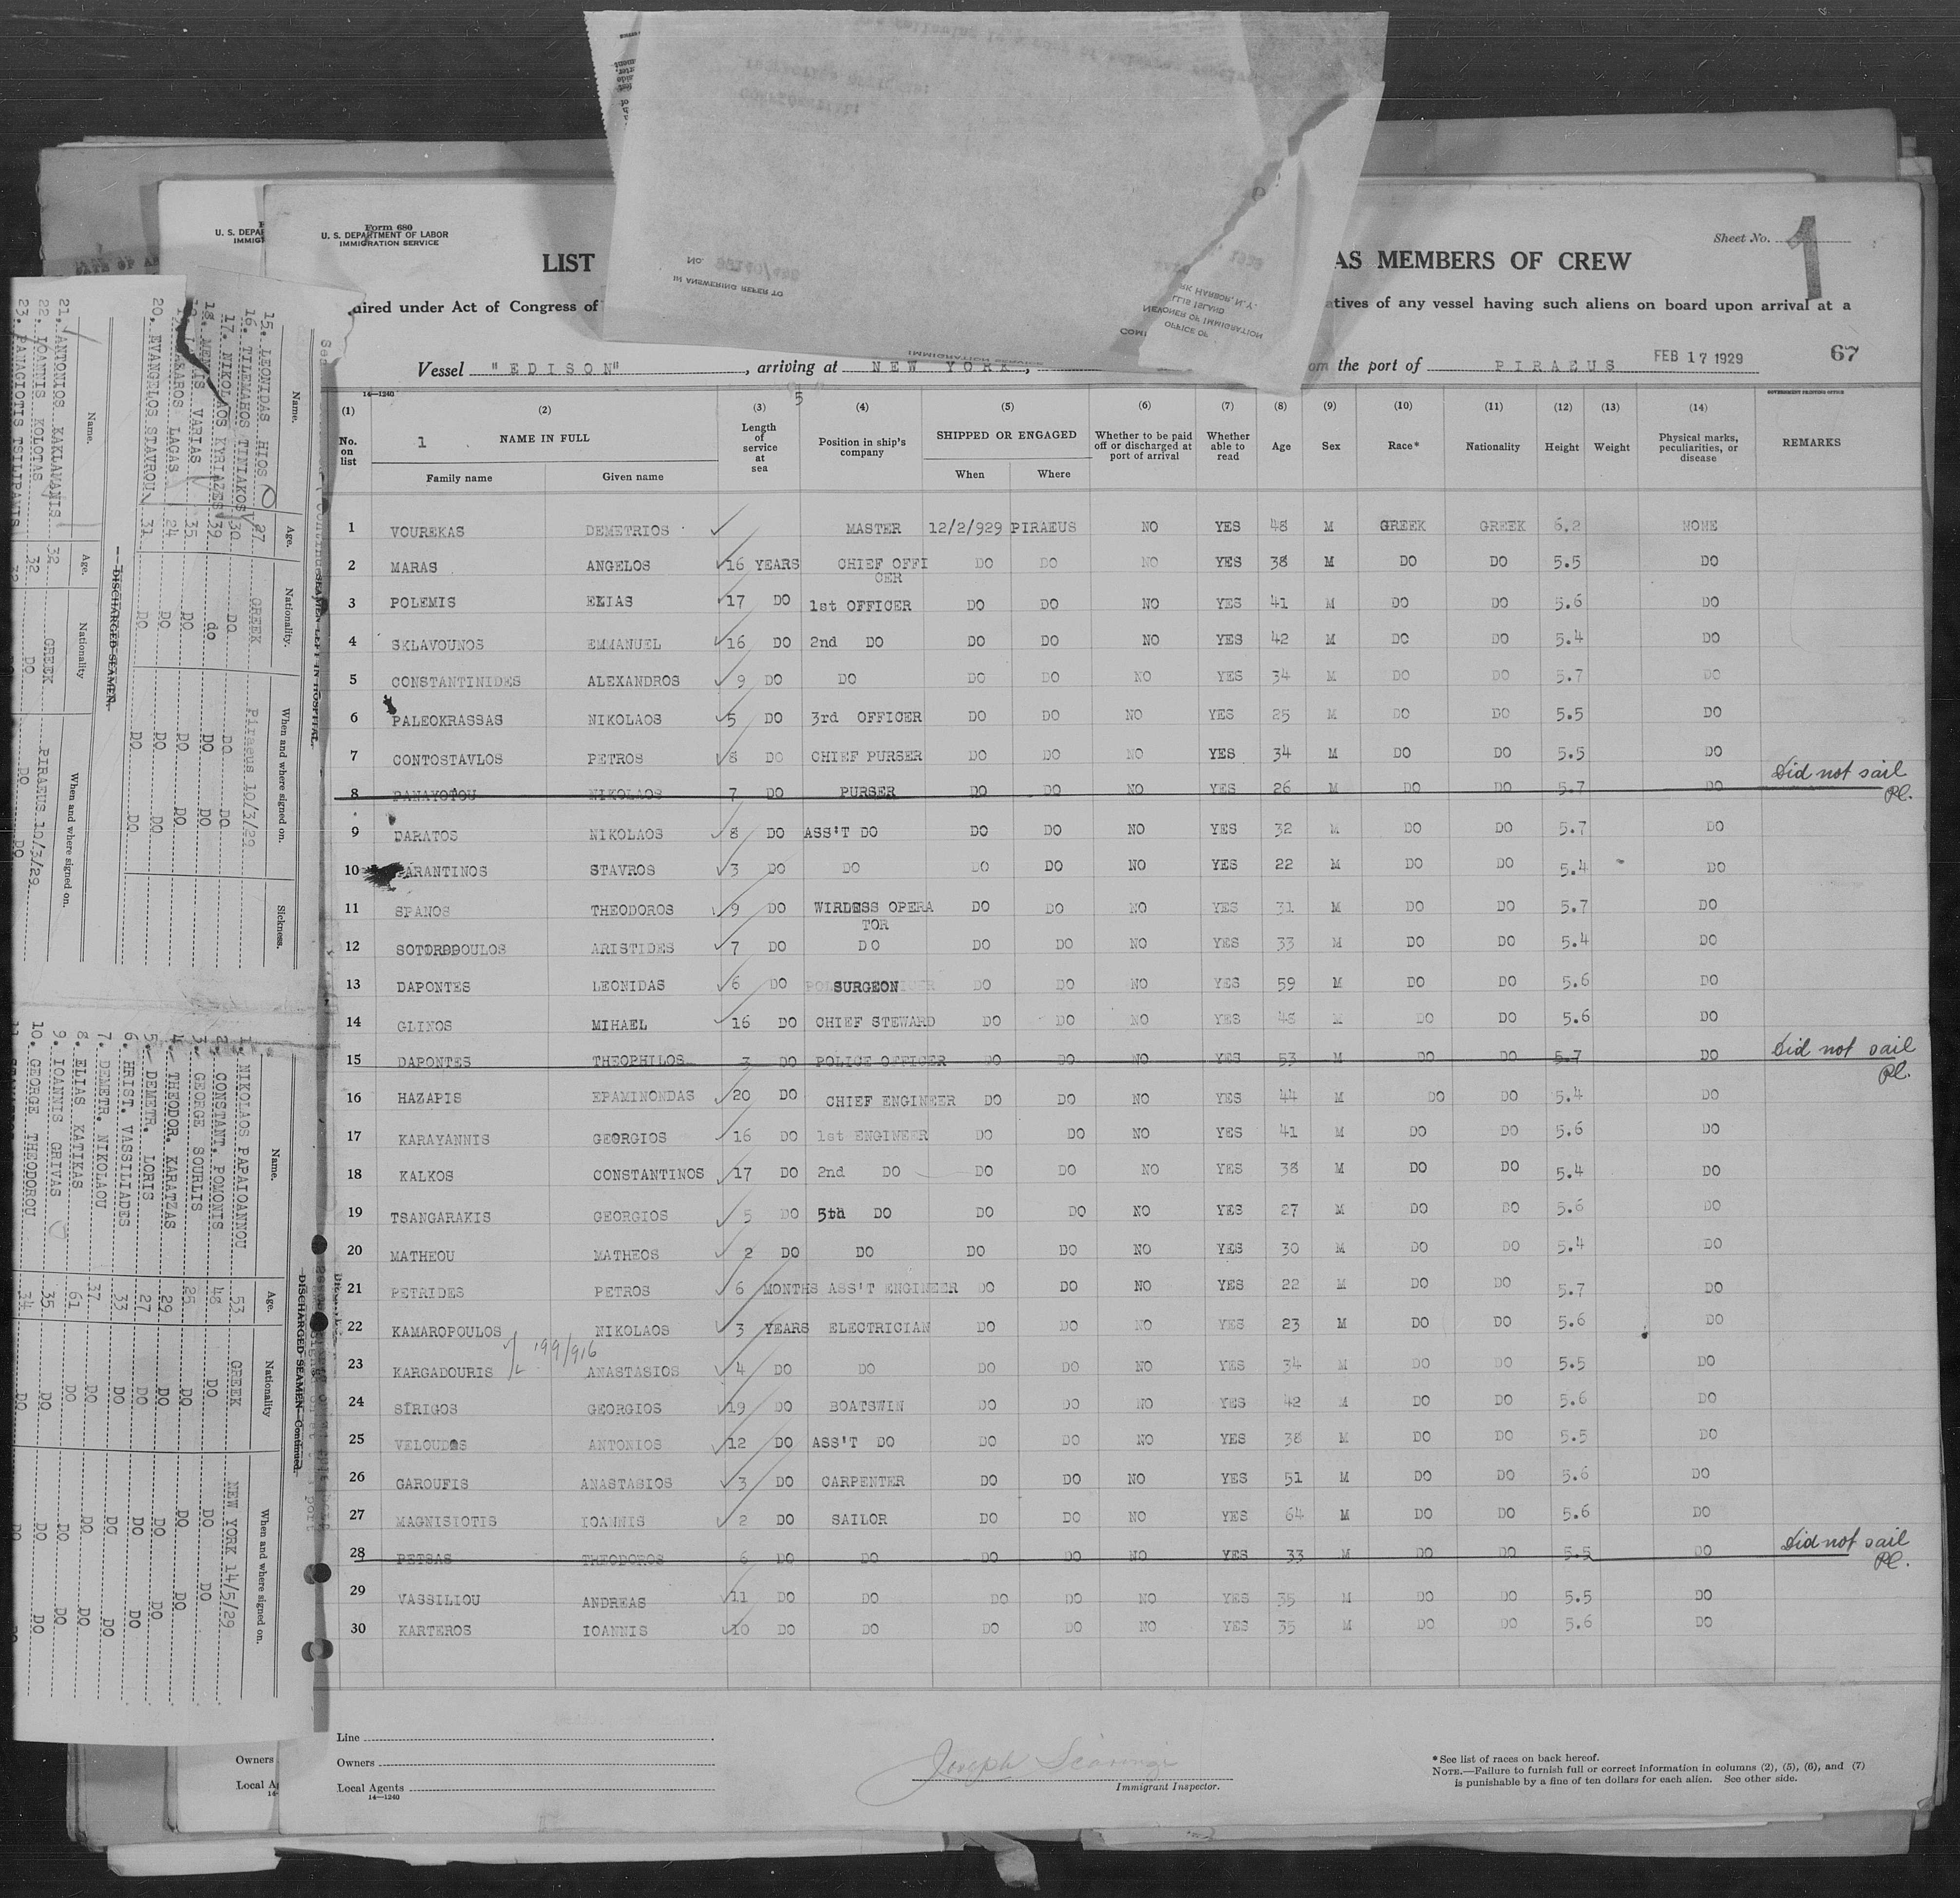 Form 680
U. S. DEPARTMENT OF LABOR
IMMIGRATION SERVICE
Sheet No. 1
LIST AS MEMBERS OF CREW
uired under Act of Congress of atives of any vessel having such aliens on board upon arrival at a
Vessel "EDISON", arriving at NEW YORK, om the port of PIRAEUS FEB 17 1929 67
14—1240
GOVERNMENT PRINTING OFFICE
(1) (2) (3) (4) (5) (6) (7) (8) (9) (10) (11) (12) (13) (14)
No. on list 1 NAME IN FULL Length of service at sea Position in ship's company SHIPPED OR ENGAGED Whether to be paid off or discharged at port of arrival Whether able to read Age Sex Race* Nationality Height Weight Physical marks, peculiarities, or disease REMARKS
Family name Given name When Where
1 VOUREKAS DEMETRIOS MASTER 12/2/929 PIRAEUS NO YES 48 M GREEK GREEK 6.2 NONE
2 MARAS ANGELOS 16 YEARS CHIEF OFFI CER DO DO NO YES 38 M DO DO 5.5 DO
3 POLEMIS ELIAS 17 DO 1st OFFICER DO DO NO YES 41 M DO DO 5.6 DO
4 SKLAVOUNOS EMMANUEL 16 DO 2nd DO DO DO NO YES 42 M DO DO 5.4 DO
5 CONSTANTINIDES ALEXANDROS 9 DO DO DO DO NO YES 34 M DO DO 5.7 DO
6 PALEOKRASSAS NIKOLAOS 5 DO 3rd OFFICER DO DO NO YES 25 M DO DO 5.5 DO
7 CONTOSTAVLOS PETROS 8 DO CHIEF PURSER DO DO NO YES 34 M DO DO 5.5 DO
8 PANAYOTOU NIKOLAOS 7 DO PURSER DO DO NO YES 26 M DO DO 5.7 DO Did not sail Pl.
9 DARATOS NIKOLAOS 8 DO ASS'T DO DO DO NO YES 32 M DO DO 5.7 DO
10 ARANTINOS STAVROS 3 DO DO DO DO NO YES 22 M DO DO 5.4 DO
11 SPANOS THEODOROS 9 DO WIRLESS OPERA TOR DO DO NO YES 31 M DO DO 5.7 DO
12 SOTOROPOULOS ARISTIDES 7 DO DO DO DO NO YES 33 M DO DO 5.4 DO
13 DAPONTES LEONIDAS 6 DO SURGEON DO DO NO YES 59 M DO DO 5.6 DO
14 GLINOS MIHAEL 16 DO CHIEF STEWARD DO DO NO YES 48 M DO DO 5.6 DO
15 DAPONTES THEOPHILOS 3 DO POLICE OFFICER DO DO NO YES 53 M DO DO 5.7 DO Did not sail Pl.
16 HAZAPIS EPAMINONDAS 20 DO CHIEF ENGINEER DO DO NO YES 44 M DO DO 5.4 DO
17 KARAYANNIS GEORGIOS 16 DO 1st ENGINEER DO DO NO YES 41 M DO DO 5.6 DO
18 KALKOS CONSTANTINOS 17 DO 2nd DO DO DO NO YES 38 M DO DO 5.4 DO
19 TSANGARAKIS GEORGIOS 5 DO 5th DO DO DO NO YES 27 M DO DO 5.6 DO
20 MATHEOU MATHEOS 2 DO DO DO DO NO YES 30 M DO DO 5.4 DO
21 PETRIDES PETROS 6 MONTHS ASS'T ENGINEER DO DO NO YES 22 M DO DO 5.7 DO
22 KAMAROPOULOS NIKOLAOS 3 YEARS ELECTRICIAN DO DO NO YES 23 M DO DO 5.6 DO
199/916
23 KARGADOURIS ANASTASIOS 4 DO DO DO DO NO YES 34 M DO DO 5.5 DO
24 SIRIGOS GEORGIOS 19 DO BOATSWIN DO DO NO YES 42 M DO DO 5.6 DO
25 VELOUDOS ANTONIOS 12 DO ASS'T DO DO DO NO YES 38 M DO DO 5.5 DO
26 GAROUFIS ANASTASIOS 3 DO CARPENTER DO DO NO YES 51 M DO DO 5.6 DO
27 MAGNISIOTIS IOANNIS 2 DO SAILOR DO DO NO YES 64 M DO DO 5.6 DO
28 PETSAS THEODOROS 6 DO DO DO DO NO YES 33 M DO DO 5.5 DO Did not sail Pl.
29 VASSILIOU ANDREAS 11 DO DO DO DO NO YES 35 M DO DO 5.5 DO
30 KARTEROS IOANNIS 10 DO DO DO DO NO YES 35 M DO DO 5.6 DO
Line
Owners
Local Agents
14—1240
Joseph
Immigrant Inspector.
*See list of races on back hereof.
NOTE.—Failure to furnish full or correct information in columns (2), (5), (6), and (7)
is punishable by a fine of ten dollars for each alien. See other side.
SEAMEN LEFT IN HOSPITAL.
Name. Age. Nationality. When and where signed on. Sickness.
15. LEONIDAS HIOS 27 GREEK Piraeus 10/3/29
16. TILEMAHOS TINIAKOS 30 DO DO DO
17. NIKOLAOS KYRIAZES 39 do DO DO
VARIAS 35 DO DO DO
LAGAS 24 DO DO DO
20. EVANGELOS STAVROU 31 DO DO DO
DISCHARGED SEAMEN.
Name. Age. Nationality When and where signed on.
21. ANTONIOS KAKLAMANIS 32 GREEK PIRAEUS 10/3/29
22. IOANNIS KOLOTAS 32 DO DO DO
23. PANAGIOTIS TSILIRANIS
DISCHARGED SEAMEN—Continued.
Name. Age. Nationality When and where signed on.
1. NIKOLAOS PAPAIOANNOU 53 GREEK NEW YORK 14/5/29
2. CONSTANT. POMONIS 48 DO DO DO
3. GEORGE SOURLIS 25 DO DO DO
4. THEODOR. KARATZAS 29 DO DO DO
5. DEMETR. LORIS 27 DO DO DO
6. HRIST. VASSILIADES 33 DO DO DO
7. DEMETR. NIKOLAOU 37 DO DO DO
8. ELIAS KATIKAS 61 DO DO DO
9. IOANNIS GRIVAS 35 DO DO DO
10. GEORGE THEODOROU 34 DO DO DO
U. S. DEPA
IMMIG
Owners
Local A
IN ANSWERING REFER TO
No.
OFFICE OF